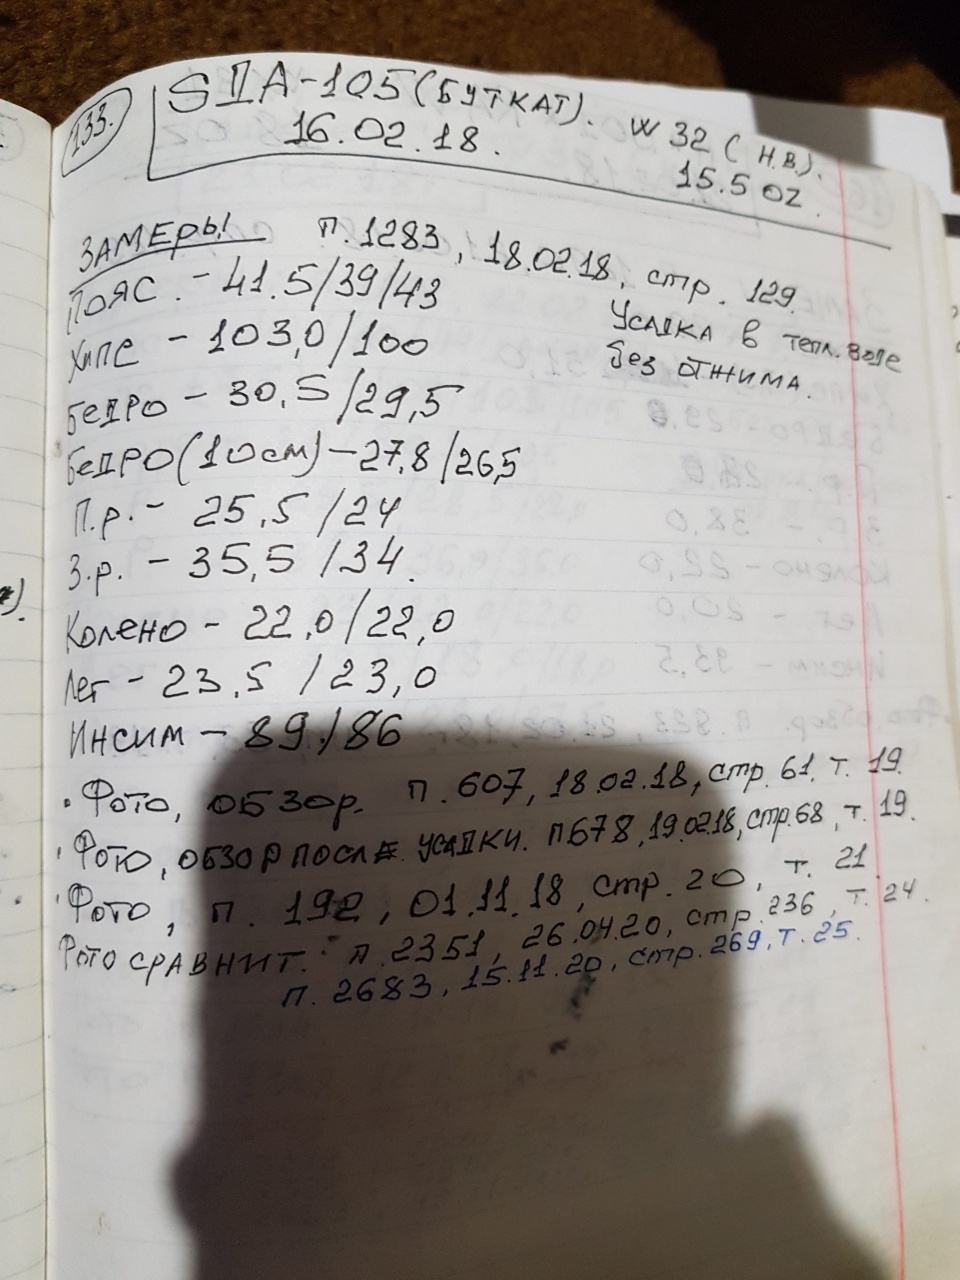 133.
SДA-105 (БУТКАТ). W 32 (Н.В.).
16.02.18. 15.5 OZ.
ЗАМЕРЫ п.1283, 18.02.18, стр. 129.
ПОЯС. - 41.5/39/43
Усадка в тепл. воде
без отжима.
Хипс - 103,0/100
БЕДРО - 30,5/29,5
БЕДРО (10см) - 27,8/26,5
П.р. - 25,5/24
З.р. - 35,5/34.
Колено - 22,0/22,0
Лег - 23,5/23,0
Инсим - 89/86
· Фото, обзор. п.607, 18.02.18, стр. 61, т. 19.
· Фото, обзор после усадки. п678, 19.02.18, стр.68, т. 19.
· Фото, п. 192, 01.11.18, стр. 20, т. 21
Фото сравнит. п.2351, 26.04.20, стр.236, т. 24.
п. 2683, 15.11.20, стр. 269, т. 25.